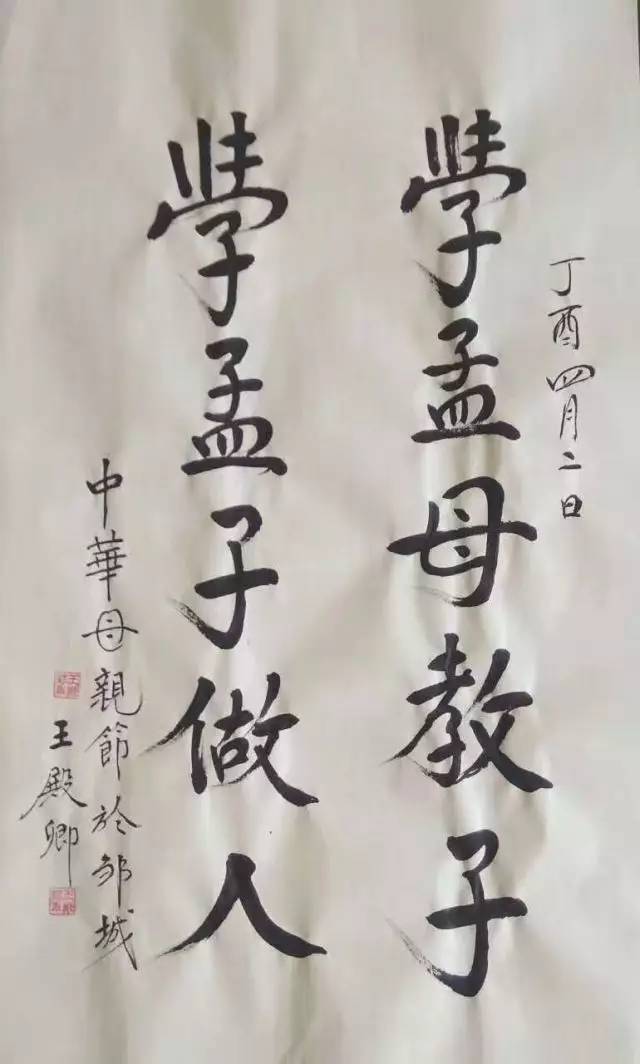 丁酉四月二日
學孟母教子
學孟子做人
中華母親節於邹城
王殿卿